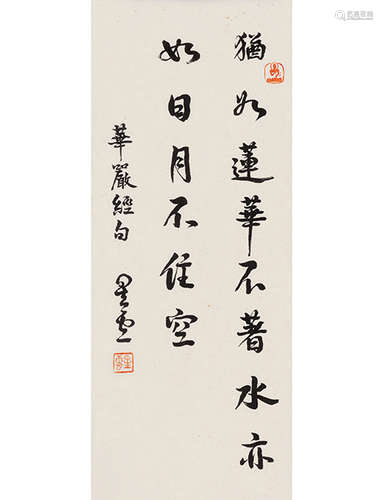 猶如蓮華不著水亦
如日月不住空
華嚴經句 星雲